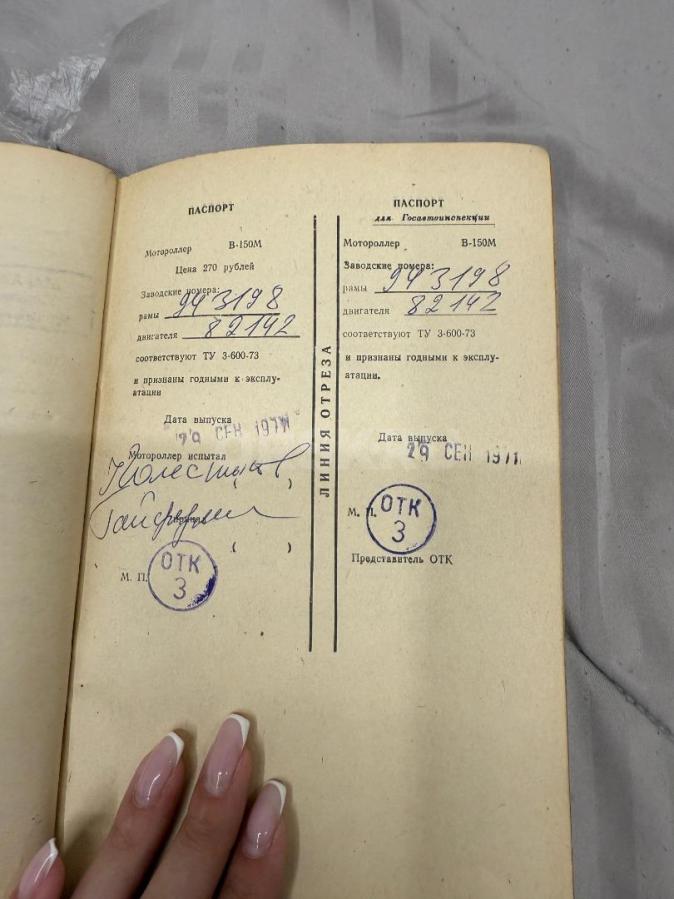 ПАСПОРТ
Мотороллер В-150М
Цена 270 рублей
Заводские номера:
рамы 943198
двигателя 82142
соответствуют ТУ 3-600-73
и признаны годными к эксплу-
атации
Дата выпуска
29 СЕН 1977
Мотороллер испытал
( )
( )
М. П.
ОТК
3
ЛИНИЯ ОТРЕЗА
ПАСПОРТ
для Госавтоинспекции
Мотороллер В-150М
Заводские номера:
рамы 943198
двигателя 82142
соответствуют ТУ 3-600-73
и признаны годными к эксплу-
атации.
Дата выпуска
29 СЕН
М. П.
ОТК
3
Представитель ОТК